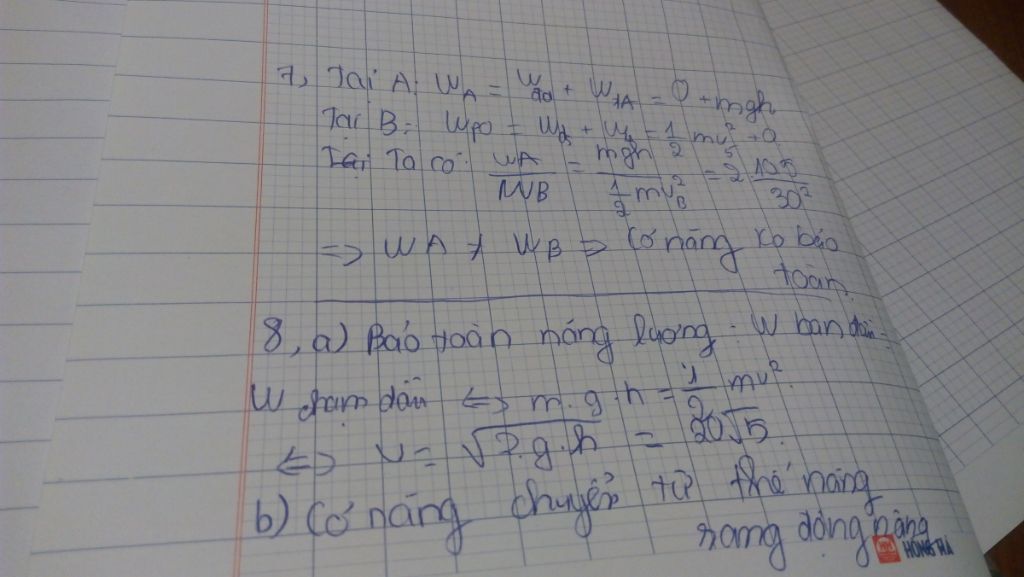 7, Tại A: W_A = W_đa + W_tA = 0 + mgh
Tại B: = W_đ + W_t = 1/2 mv² + 0
Tại Ta có: WA/WB = mgh / (1/2 mv_B²) = 2
=> WA ≠ WB => Cơ năng ko bảo
toàn.
8, a) Bảo toàn năng lượng: W ban đầu =
W chạm đất <=> m.g.h = 1/2 mv².
<=> v = √2.g.h = 20√5.
b) Cơ năng chuyển từ thế năng
sang động năng
HỒNG HÀ